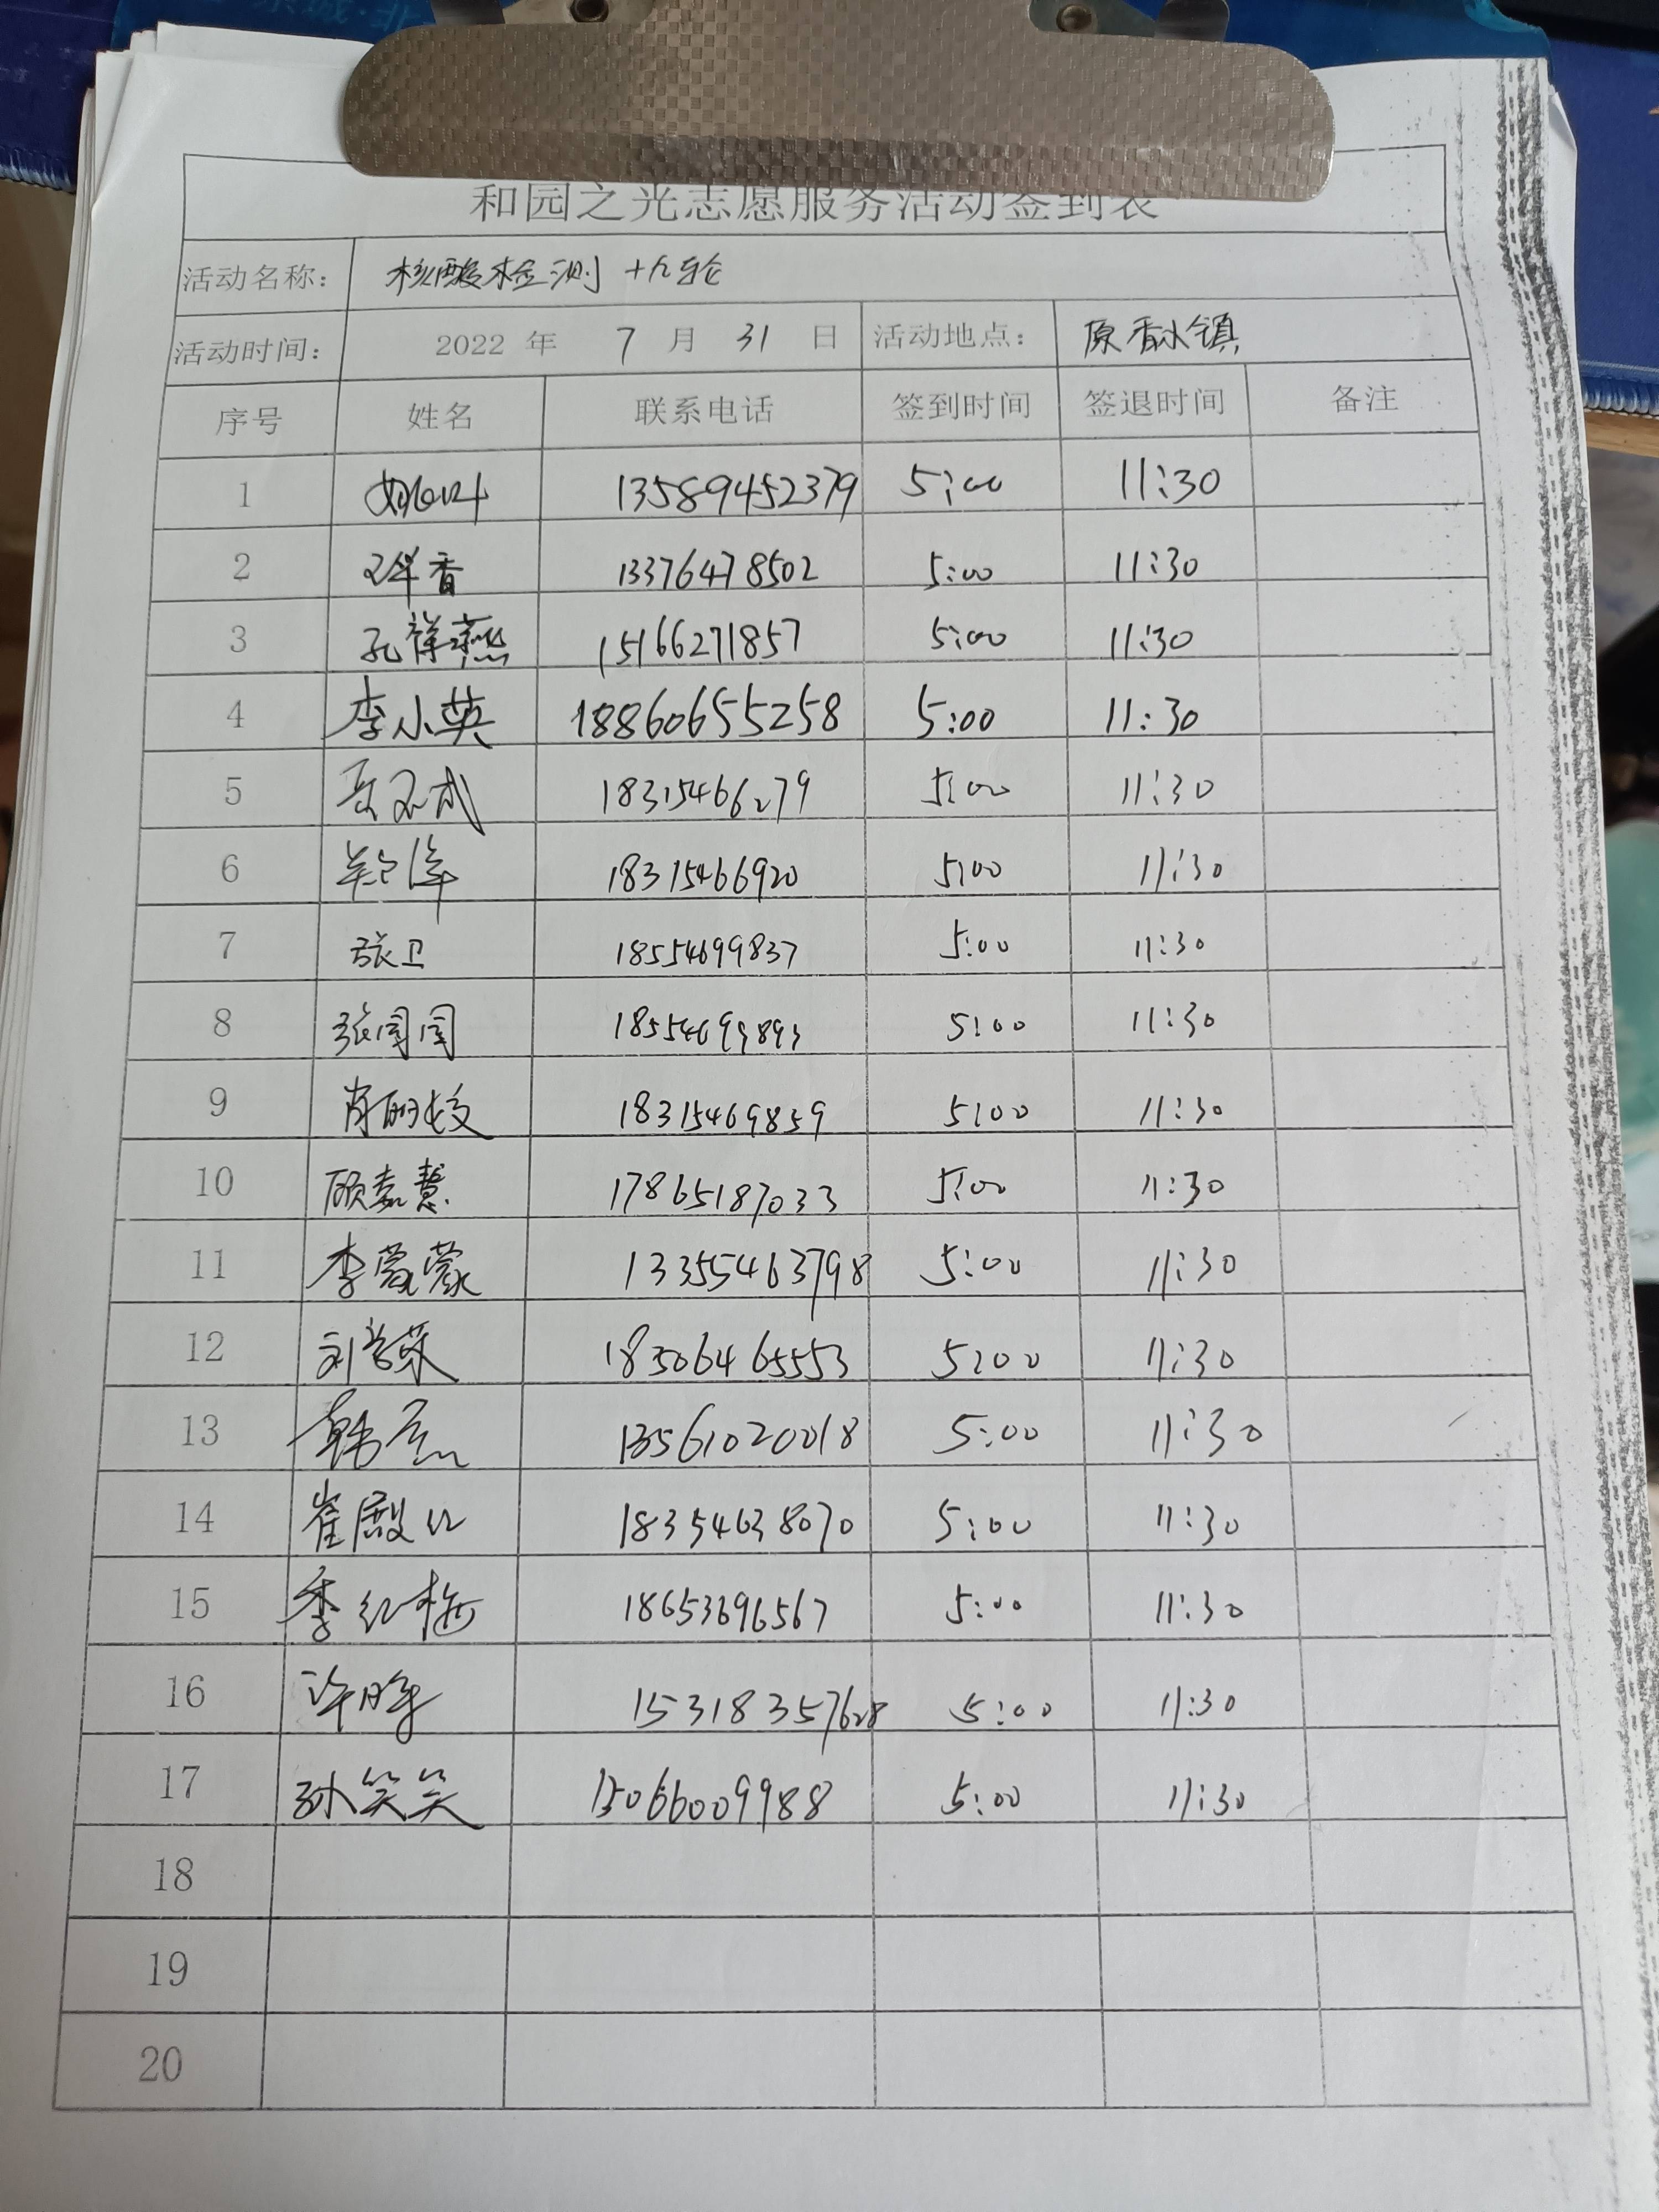 和园之光志愿服务活动签到表
活动名称: 核酸检测 十九轮
活动时间: 2022 年 7 月 31 日 活动地点: 原香水镇
序号 姓名 联系电话 签到时间 签退时间 备注
1 13589452379 5:00 11:30
2 13376478502 5:00 11:30
3 孔祥燕 15166271857 5:00 11:30
4 李小英 18860655258 5:00 11:30
5 18315466279 5:00 11:30
6 18315466920 5:00 11:30
7 张卫 18554699837 5:00 11:30
8 张闰闰 18554699893 5:00 11:30
9 肖丽姣 18315469859 5:00 11:30
10 顾嘉慧 17865187033 5:00 11:30
11 李蒙蒙 13355463798 5:00 11:30
12 刘学荣 18306465553 5:00 11:30
13 13561020018 5:00 11:30
14 崔殿红 18354638070 5:00 11:30
15 季红梅 18653696567 5:00 11:30
16 15318357628 5:00 11:30
17 孙笑笑 15066009988 5:00 11:30
18
19
20